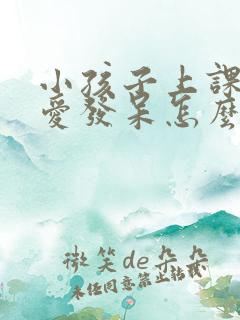 小孩子上課
愛發呆怎麼
微笑de朵朵
未任同意禁止轉載